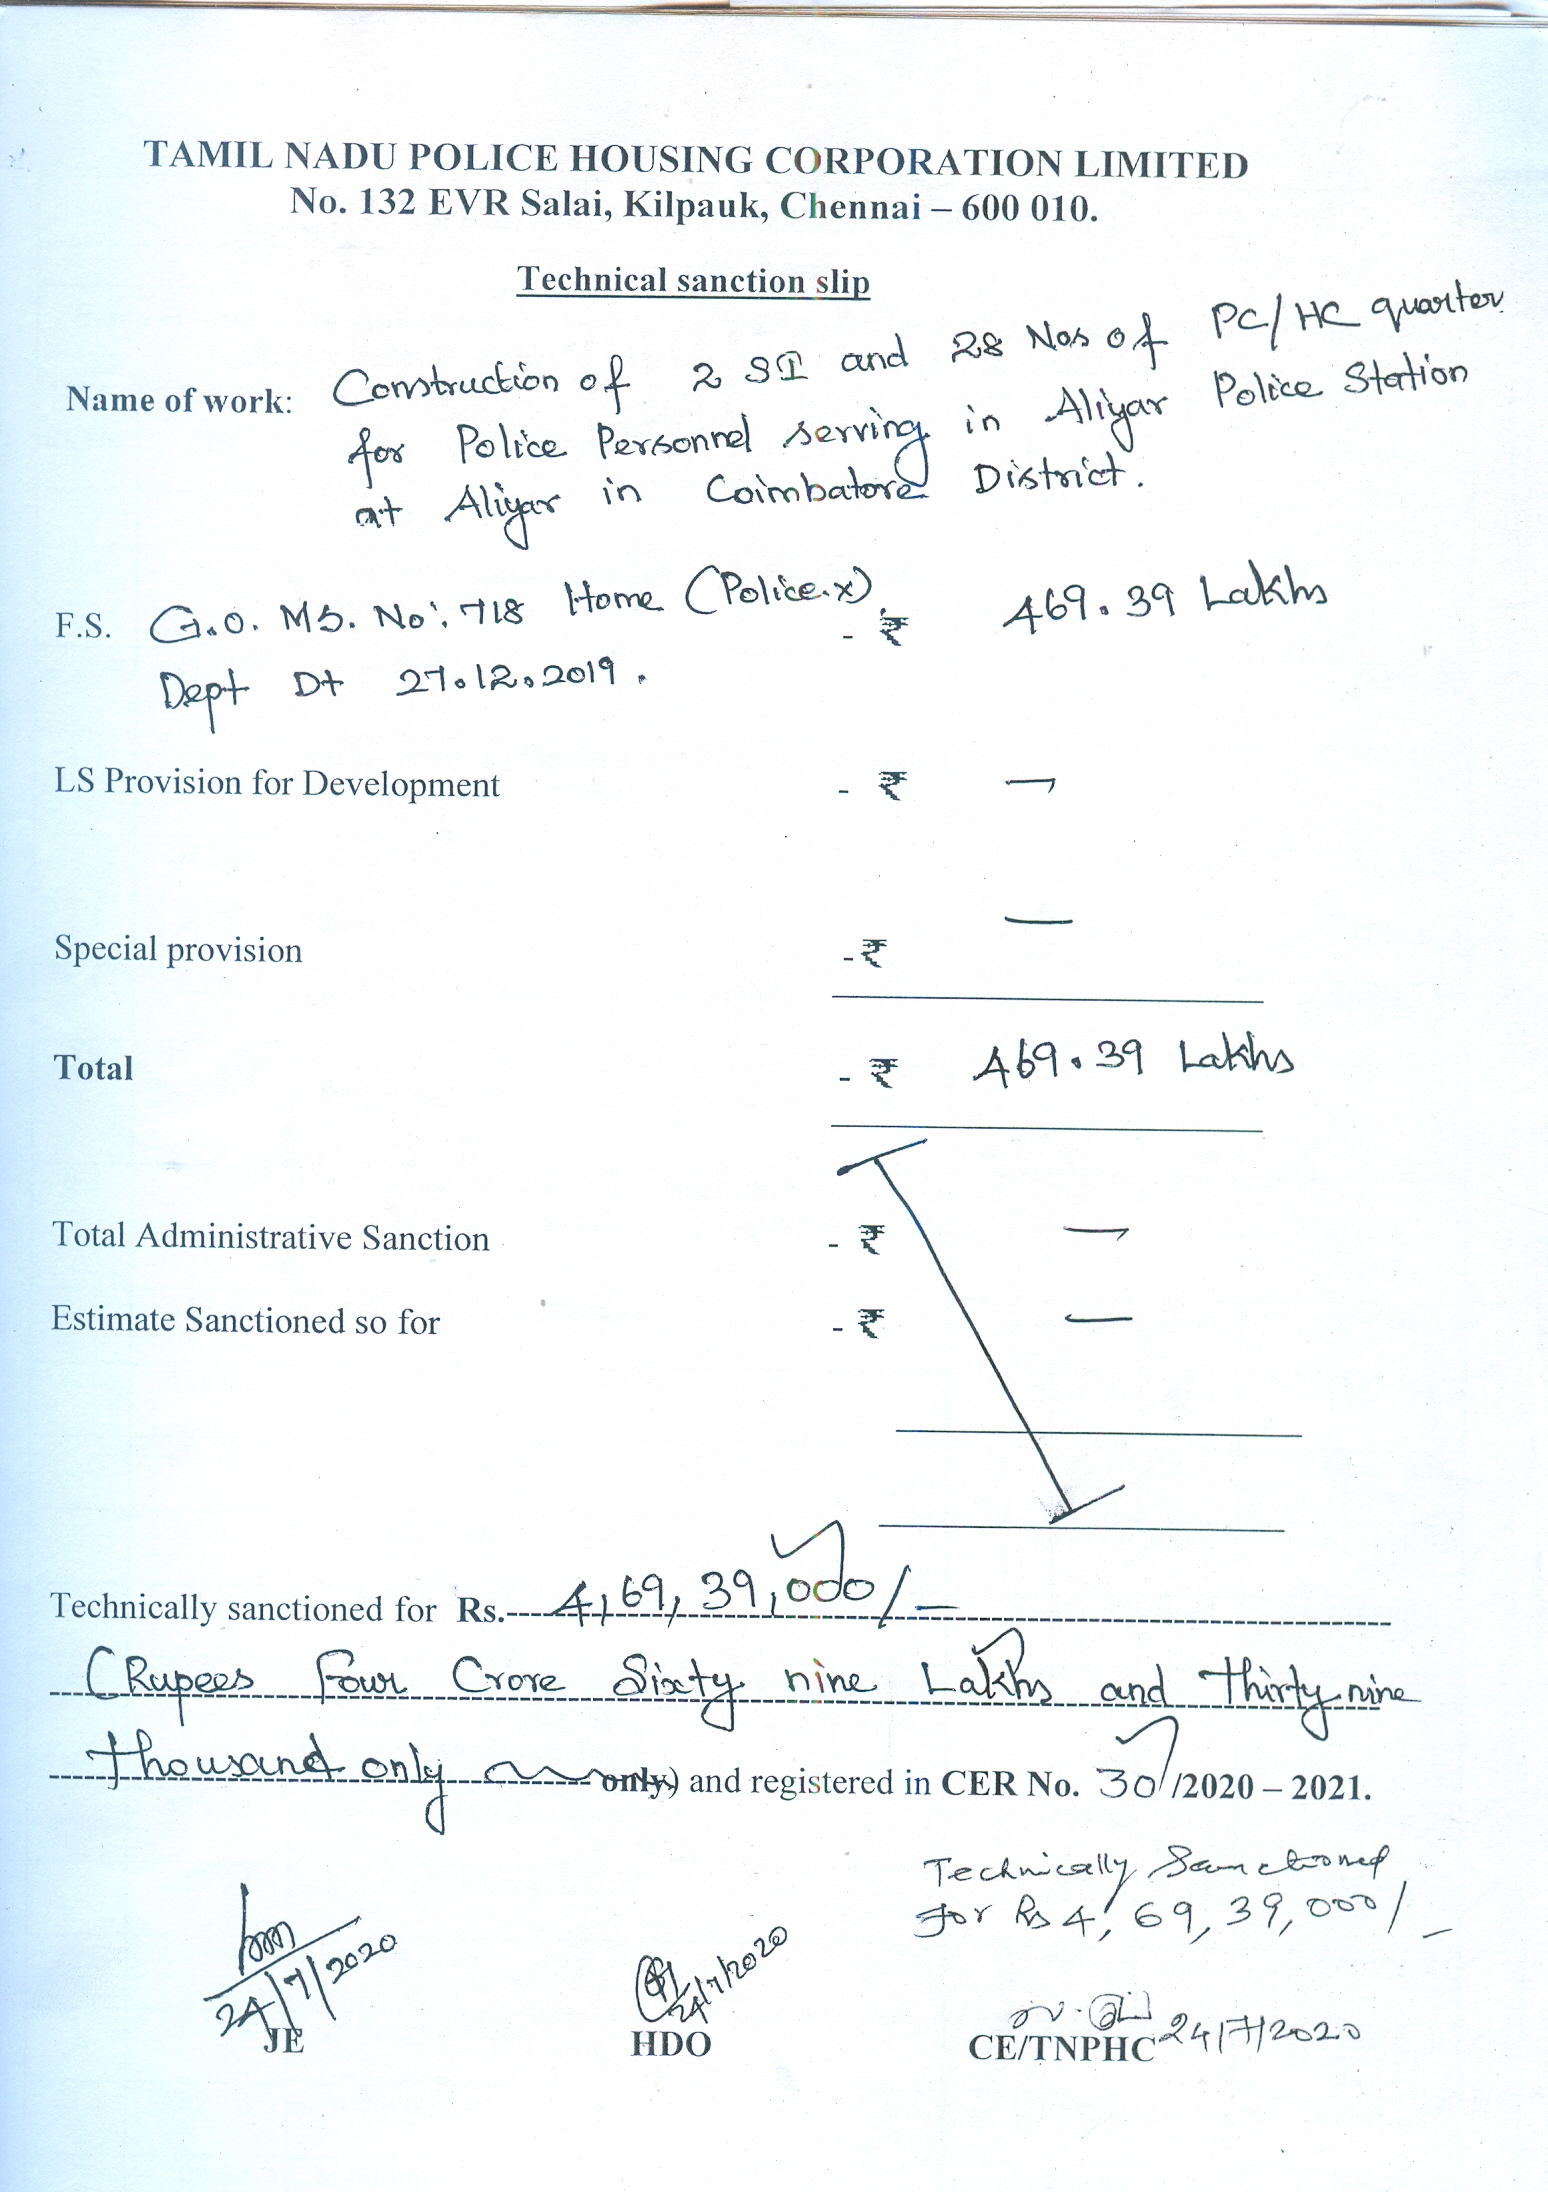 TAMIL NADU POLICE HOUSING CORPORATION LIMITED
No. 132 EVR Salai, Kilpauk, Chennai – 600 010.
Technical sanction slip
Name of work: Construction of 2 SI and 28 Nos of PC/HC quarter
for Police Personnel serving in Aliyar Police Station
at Aliyar in Coimbatore District.
F.S. G.O. MS. No: 718 Home (Police.x) - ₹ 469.39 Lakhs
Dept Dt 27.12.2019.
LS Provision for Development - ₹ —
Special provision - ₹ —
Total - ₹ 469.39 Lakhs
Total Administrative Sanction - ₹ —
Estimate Sanctioned so for - ₹ —
Technically sanctioned for Rs. 4,69,39,000/-
(Rupees Four Crore Sixty nine Lakhs and Thirty nine
thousand only only) and registered in CER No. 30/2020 – 2021.
Technically Sanctioned
for Rs 4,69,39,000/-
24/7/2020 24/7/2020 24/7/2020
JE HDO CE/TNPHC